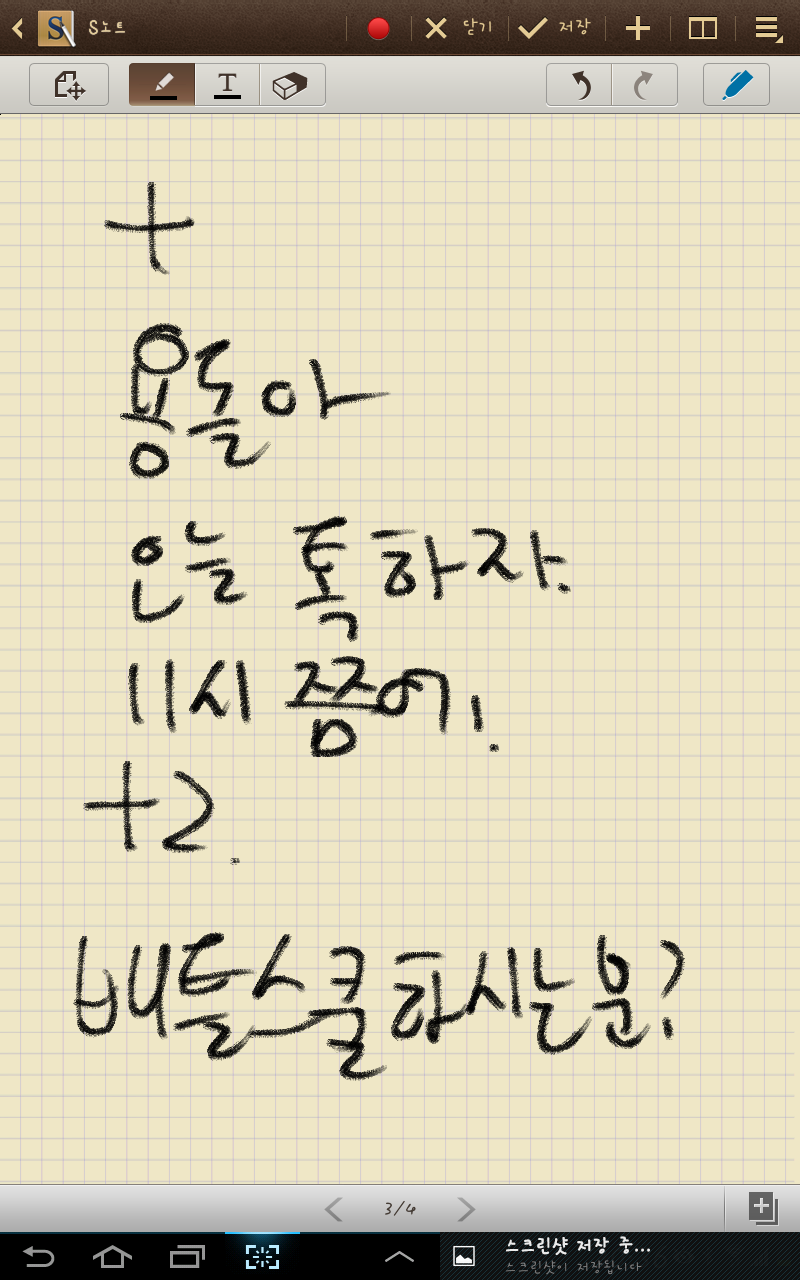 S노트
닫기
저장
T
+
용돌아
오늘 톡하자.
11시 쯤에!
+2.
배틀스쿨하시는분?
3/4
스크린샷 저장 중...
스크린샷이 저장됩니다